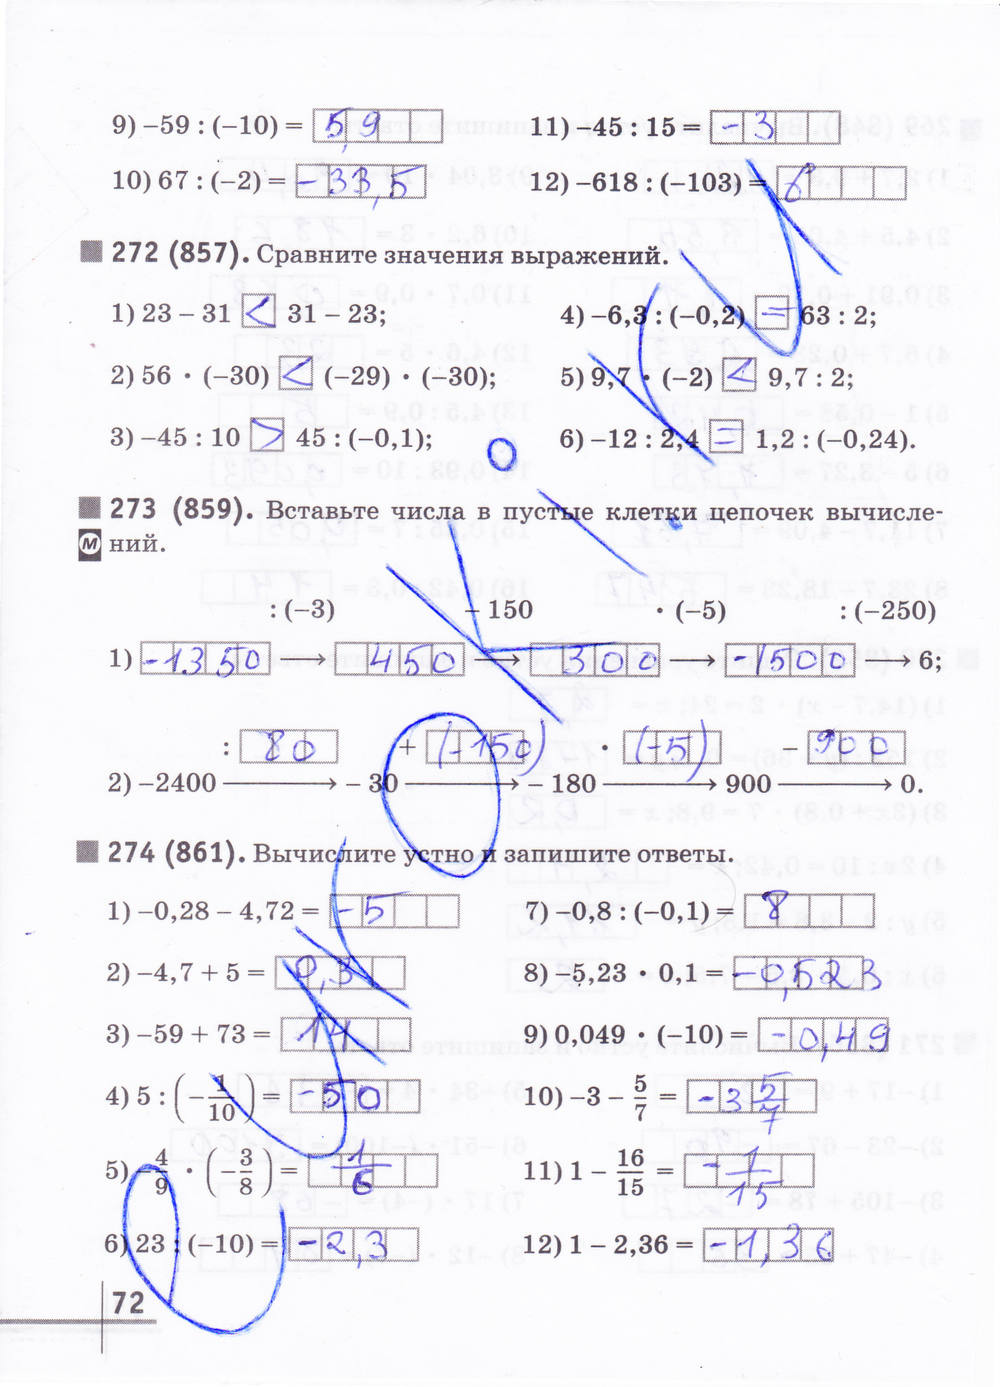 9) –59 : (–10) = 5,9
11) –45 : 15 = -3
10) 67 : (–2) = -33,5
12) –618 : (–103) = 6
272 (857). Сравните значения выражений.
1) 23 – 31 < 31 – 23;
4) –6,3 : (–0,2) = 63 : 2;
2) 56 · (–30) < (–29) · (–30);
5) 9,7 · (–2) < 9,7 : 2;
3) –45 : 10 > 45 : (–0,1);
6) –12 : 2,4 = 1,2 : (–0,24).
273 (859). Вставьте числа в пустые клетки цепочек вычисле-
М ний.
: (–3) – 150 · (–5) : (–250)
1) -1350 → 450 → 300 → 1500 → 6;
: 80 + (-150) · (-5) – 900
2) –2400 → – 30 → – 180 → 900 → 0.
274 (861). Вычислите устно и запишите ответы.
1) –0,28 – 4,72 = -5
7) –0,8 : (–0,1) = 8
2) –4,7 + 5 = 0,3
8) –5,23 · 0,1 = -0,523
3) –59 + 73 = 14
9) 0,049 · (–10) = -0,49
4) 5 : (–1/10) = -50
10) –3 – 5/7 = -3 5/7
5) –4/9 · (–3/8) = 1/6
11) 1 – 16/15 = -1/15
6) 23 : (–10) = -2,3
12) 1 – 2,36 = -1,36
72